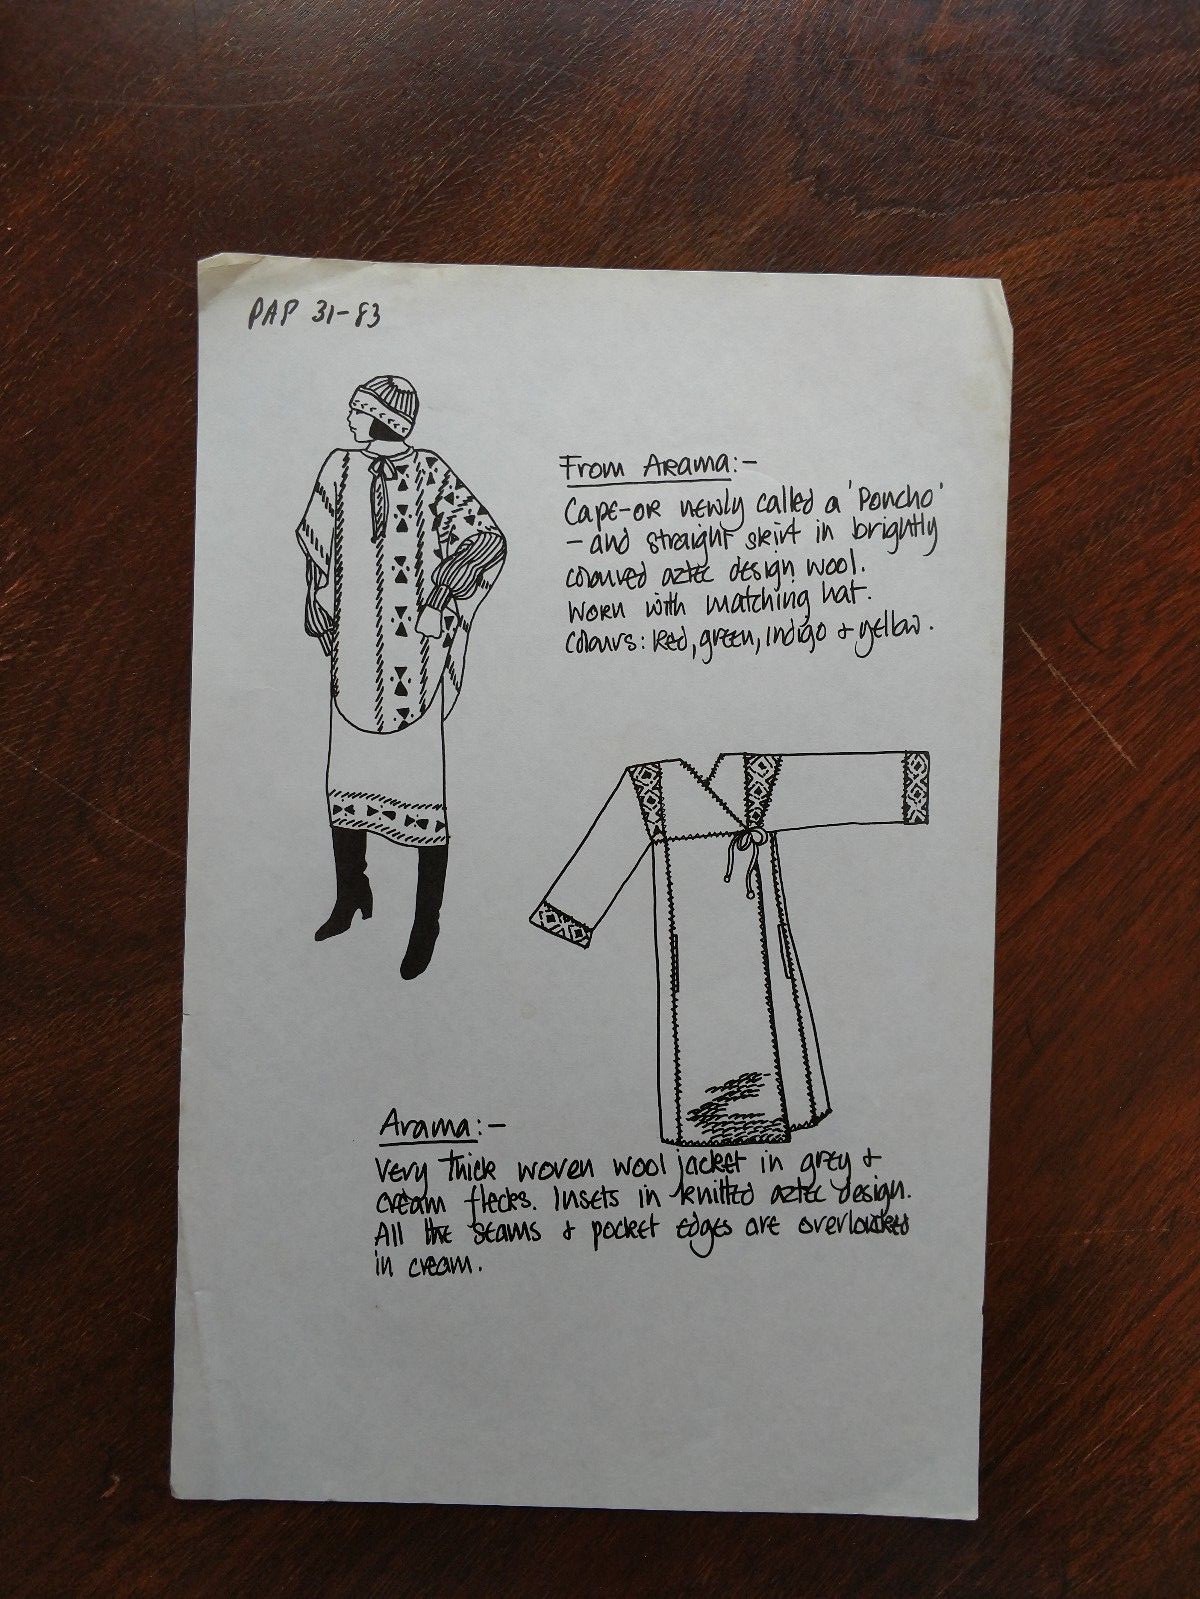 PAP 31-83
From Arama:-
Cape-or newly called a 'Poncho'
- and straight skirt in brightly
coloured aztec design wool.
Worn with matching hat.
Colours: Red, green, indigo & yellow.
Arama:-
Very thick woven wool jacket in grey &
cream flecks. Insets in knitted aztec design.
All the seams & pocket edges are overlocked
in cream.